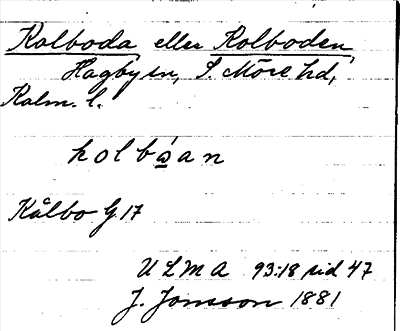 Kolboda eller Kolboden
Hagby sn, S. Möre hd,
Kalm. l.
kolbo̲an
Kålbo G 17
ULMA 93:18 sid 47
J. Jonsson 1881